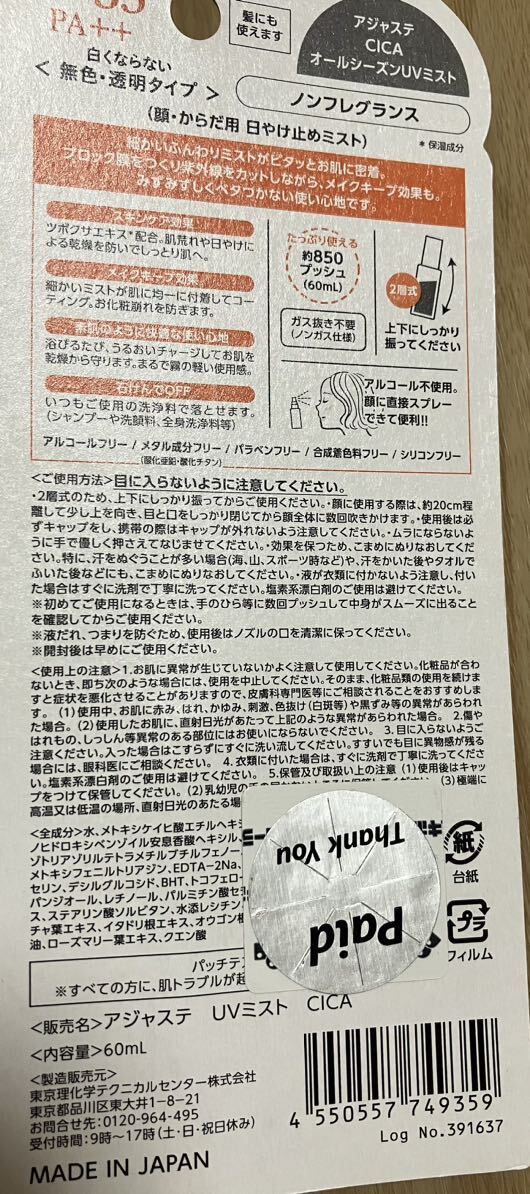 PA++
白くならない
＜ 無色・透明タイプ ＞
髪にも
使えます
アジャステ
CICA
オールシーズンUVミスト
ノンフレグランス
(顔・からだ用 日やけ止めミスト)
＊保湿成分
細かいふんわりミストがピタッとお肌に密着。
ブロック膜をつくり紫外線をカットしながら、メイクキープ効果も。
みずみずしくベタつかない使い心地です。
スキンケア効果
ツボクサエキス＊配合。肌荒れや日やけに
よる乾燥を防いでしっとり肌へ。
メイクキープ効果
細かいミストが肌に均一に付着してコー
ティング。お化粧崩れを防ぎます。
素肌のように快適な使い心地
浴びるたび、うるおいチャージしてお肌を
乾燥から守ります。まるで霧の軽い使用感。
石けんでOFF
いつもご使用の洗浄料で落とせます。
(シャンプーや洗顔料、全身洗浄料等)
たっぷり使える
約850
プッシュ
(60mL)
ガス抜き不要
(ノンガス仕様)
2層式
上下にしっかり
振ってください
アルコール不使用。
顔に直接スプレー
できて便利!!
アルコールフリー / メタル成分フリー / パラベンフリー / 合成着色料フリー / シリコンフリー
(酸化亜鉛・酸化チタン)
＜ご使用方法＞目に入らないように注意してください。
・2層式のため、上下にしっかり振ってからご使用ください。・顔に使用する際は、約20cm程
離して少し上を向き、目と口をしっかり閉じてから顔全体に数回吹きかけます。・使用後は必
ずキャップをし、携帯の際はキャップが外れないよう注意してください。・ムラにならないよ
うに手で優しく押さえてなじませてください。・効果を保つため、こまめにぬりなおしてくだ
さい。特に、汗をぬぐうことが多い場合(海、山、スポーツ時など)や、汗をかいた後やタオルで
ふいた後などにも、こまめにぬりなおしてください。・液が衣類に付かないよう注意し、付い
た場合はすぐに洗剤で丁寧に洗ってください。塩素系漂白剤のご使用は避けてください。
※初めてご使用になるときは、手のひら等に数回プッシュして中身がスムーズに出ること
を確認してからご使用ください。
※液だれ、つまりを防ぐため、使用後はノズルの口を清潔に保ってください。
※開封後は早めにご使用ください。
＜使用上の注意＞1.お肌に異常が生じていないかよく注意して使用してください。化粧品が合わ
ないとき、即ち次のような場合には、使用を中止してください。そのまま、化粧品類の使用を続けま
すと症状を悪化させることがありますので、皮膚科専門医等にご相談されることをおすすめしま
す。 (1)使用中、お肌に赤み、はれ、かゆみ、刺激、色抜け(白斑等)や黒ずみ等の異常があらわれ
た場合。 (2)使用したお肌に、直射日光があたって上記のような異常があらわれた場合。 2.傷や
はれもの、しっしん等異常のある部位にはお使いにならないでください。 3.目に入らないようご
注意ください。入った場合はこすらずにすぐに洗い流してください。すすいでも目に異物感が残る
場合には、眼科医にご相談ください。 4.衣類に付いた場合は、すぐに洗剤で丁寧に洗ってくださ
い。塩素系漂白剤のご使用は避けてください。 5.保管及び取扱い上の注意 (1)使用後はキャッ
プをつけて保管してください。(2)乳幼児の (3)極端に
高温又は低温の場所、直射日光のあたる場
＜全成分＞水、メトキシケイヒ酸エチルヘキシ
ノヒドロキシベンゾイル安息香酸ヘキシル、
ゾトリアゾリルテトラメチルブチルフェノー
メトキシフェニルトリアジン、EDTA-2Na、
セリン、デシルグルコシド、BHT、トコフェロ
パンジオール、レチノール、パルミチン酸セ
ス、ステアリン酸ソルビタン、水添レシチン、
チャ葉エキス、イタドリ根エキス、オウゴン根
油、ローズマリー葉エキス、クエン酸
Thank You
Paid
紙
台紙
プラ
フィルム
パッチテス
※すべての方に、肌トラブルが起
＜販売名＞アジャステ UVミスト CICA
＜内容量＞60mL
＜製造販売元＞
東京理化学テクニカルセンター株式会社
東京都品川区東大井1-8-21
お問合せ先:0120-964-495
受付時間:9時〜17時(土・日・祝日休み)
MADE IN JAPAN
4 550557 749359
Log No.391637